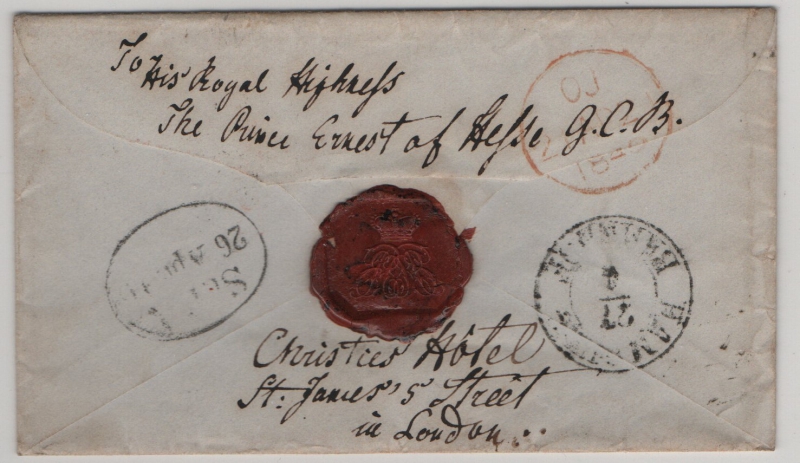 To
His Royal Highness
The Prince Ernest of Hesse G.C.B.
Christies Hôtel
St. James's Street
in London..
26 Ap
27
4